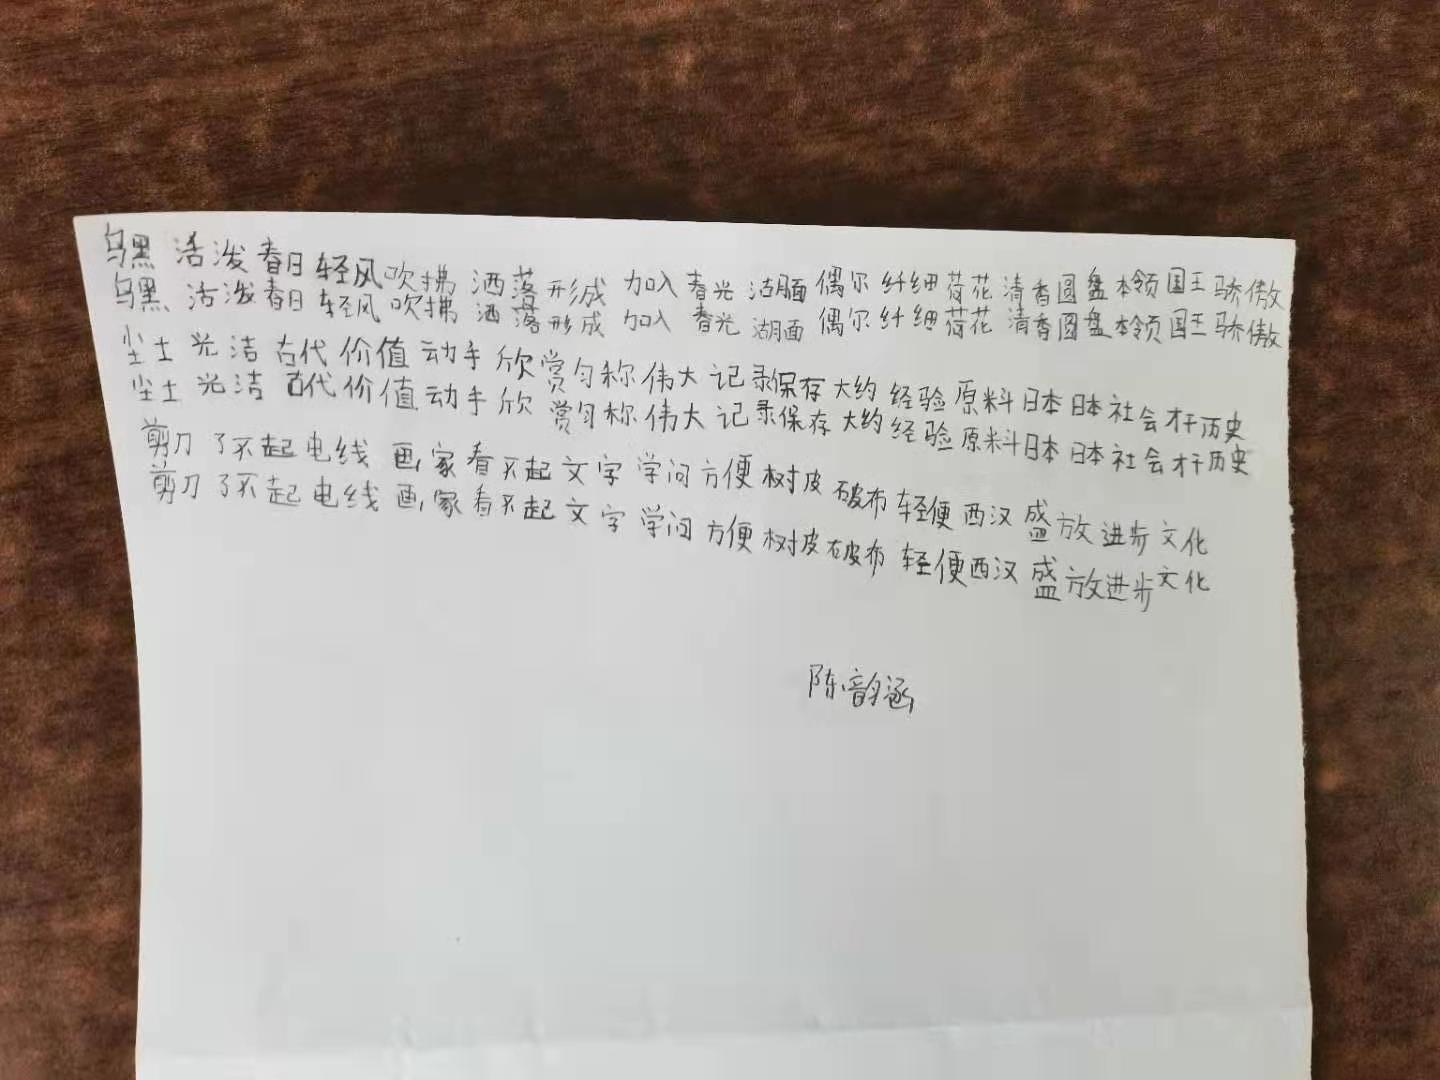 乌黑 活泼 春日 轻风 吹拂 洒落 形成 加入 春光 湖面 偶尔 纤细 荷花 清香 圆盘 本领 国王 骄傲
乌黑 活泼 春日 轻风 吹拂 洒落 形成 加入 春光 湖面 偶尔 纤细 荷花 清香 圆盘 本领 国王 骄傲
尘土 光洁 古代 价值 动手 欣赏 匀称 伟大 记录 保存 大约 经验 原料 日本 日本 社会 才干 历史
尘土 光洁 古代 价值 动手 欣赏 匀称 伟大 记录 保存 大约 经验 原料 日本 日本 社会 才干 历史
剪刀 了不起 电线 画家 看不起 文字 学问 方便 树皮 破布 轻便 西汉 盛放 进步 文化
剪刀 了不起 电线 画家 看不起 文字 学问 方便 树皮 破布 轻便 西汉 盛放 进步 文化
陈韵涵